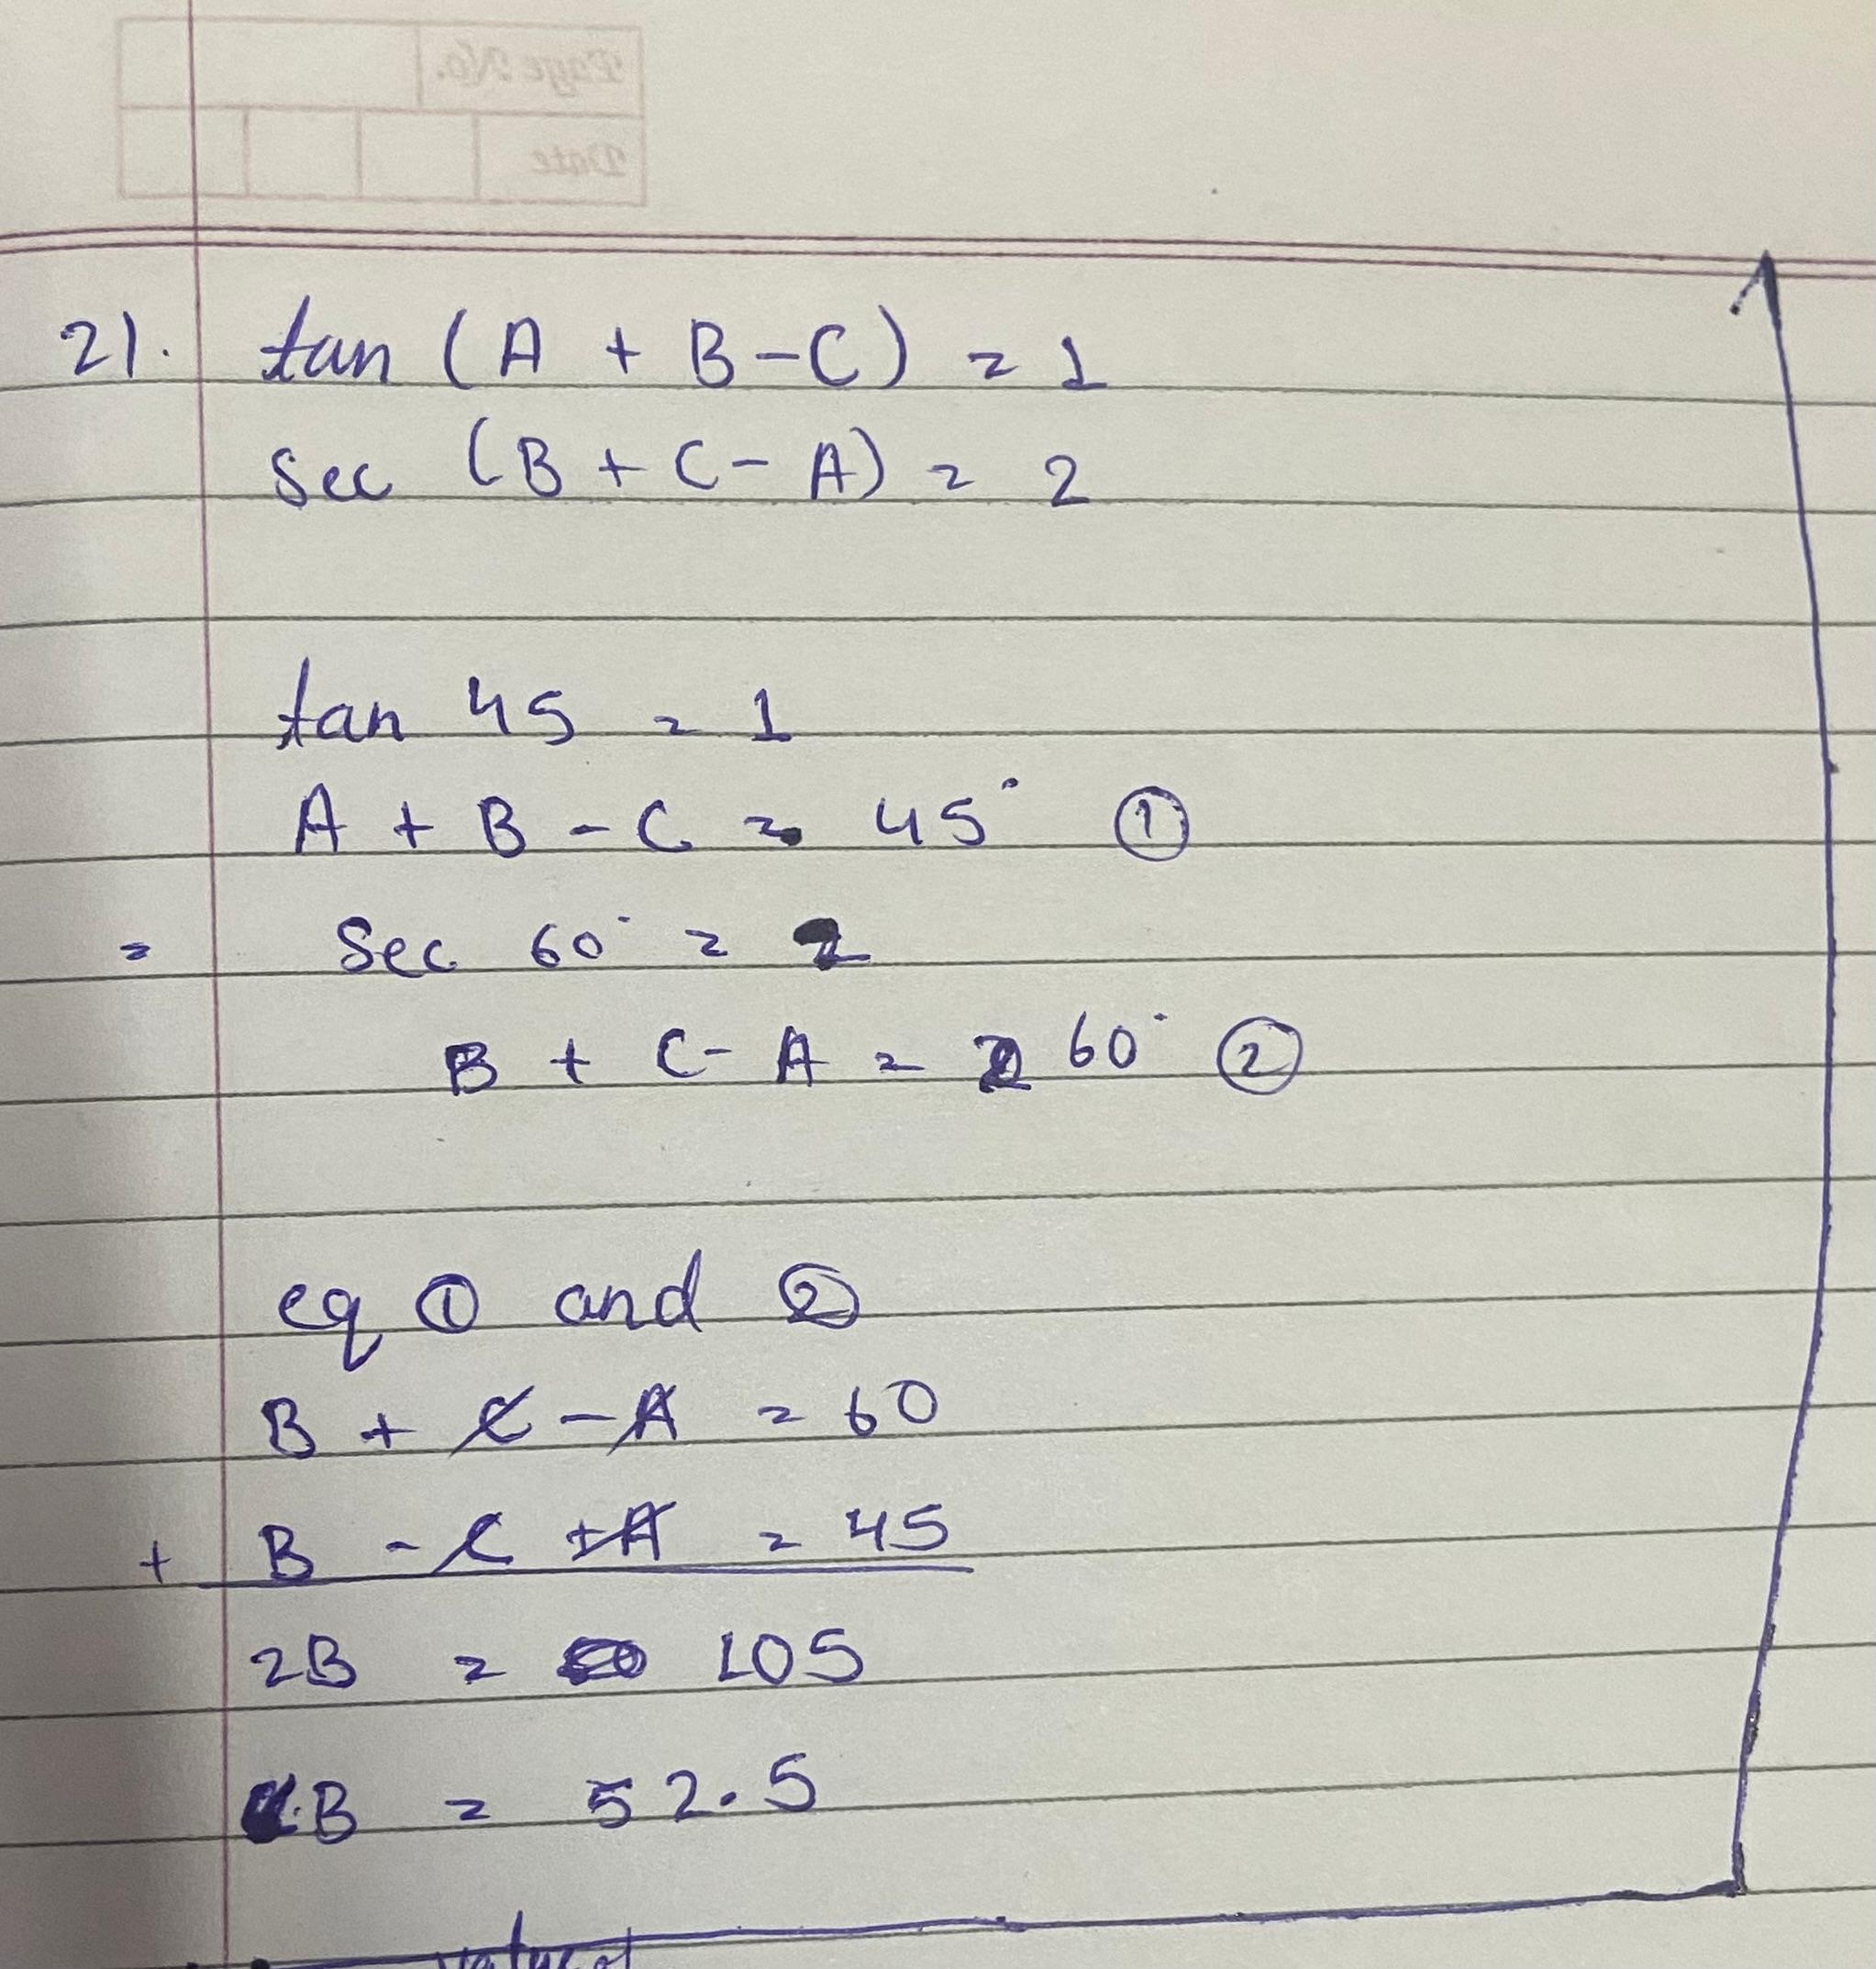 Page No.
Date
21. tan (A + B - C) = 1
sec (B + C - A) = 2
tan 45 = 1
A + B - C = 45° ①
= Sec 60° = 2
B + C - A = 60° ②
eq ① and ②
B + C - A = 60
+ B - C + A = 45
2B = 105
B = 52.5